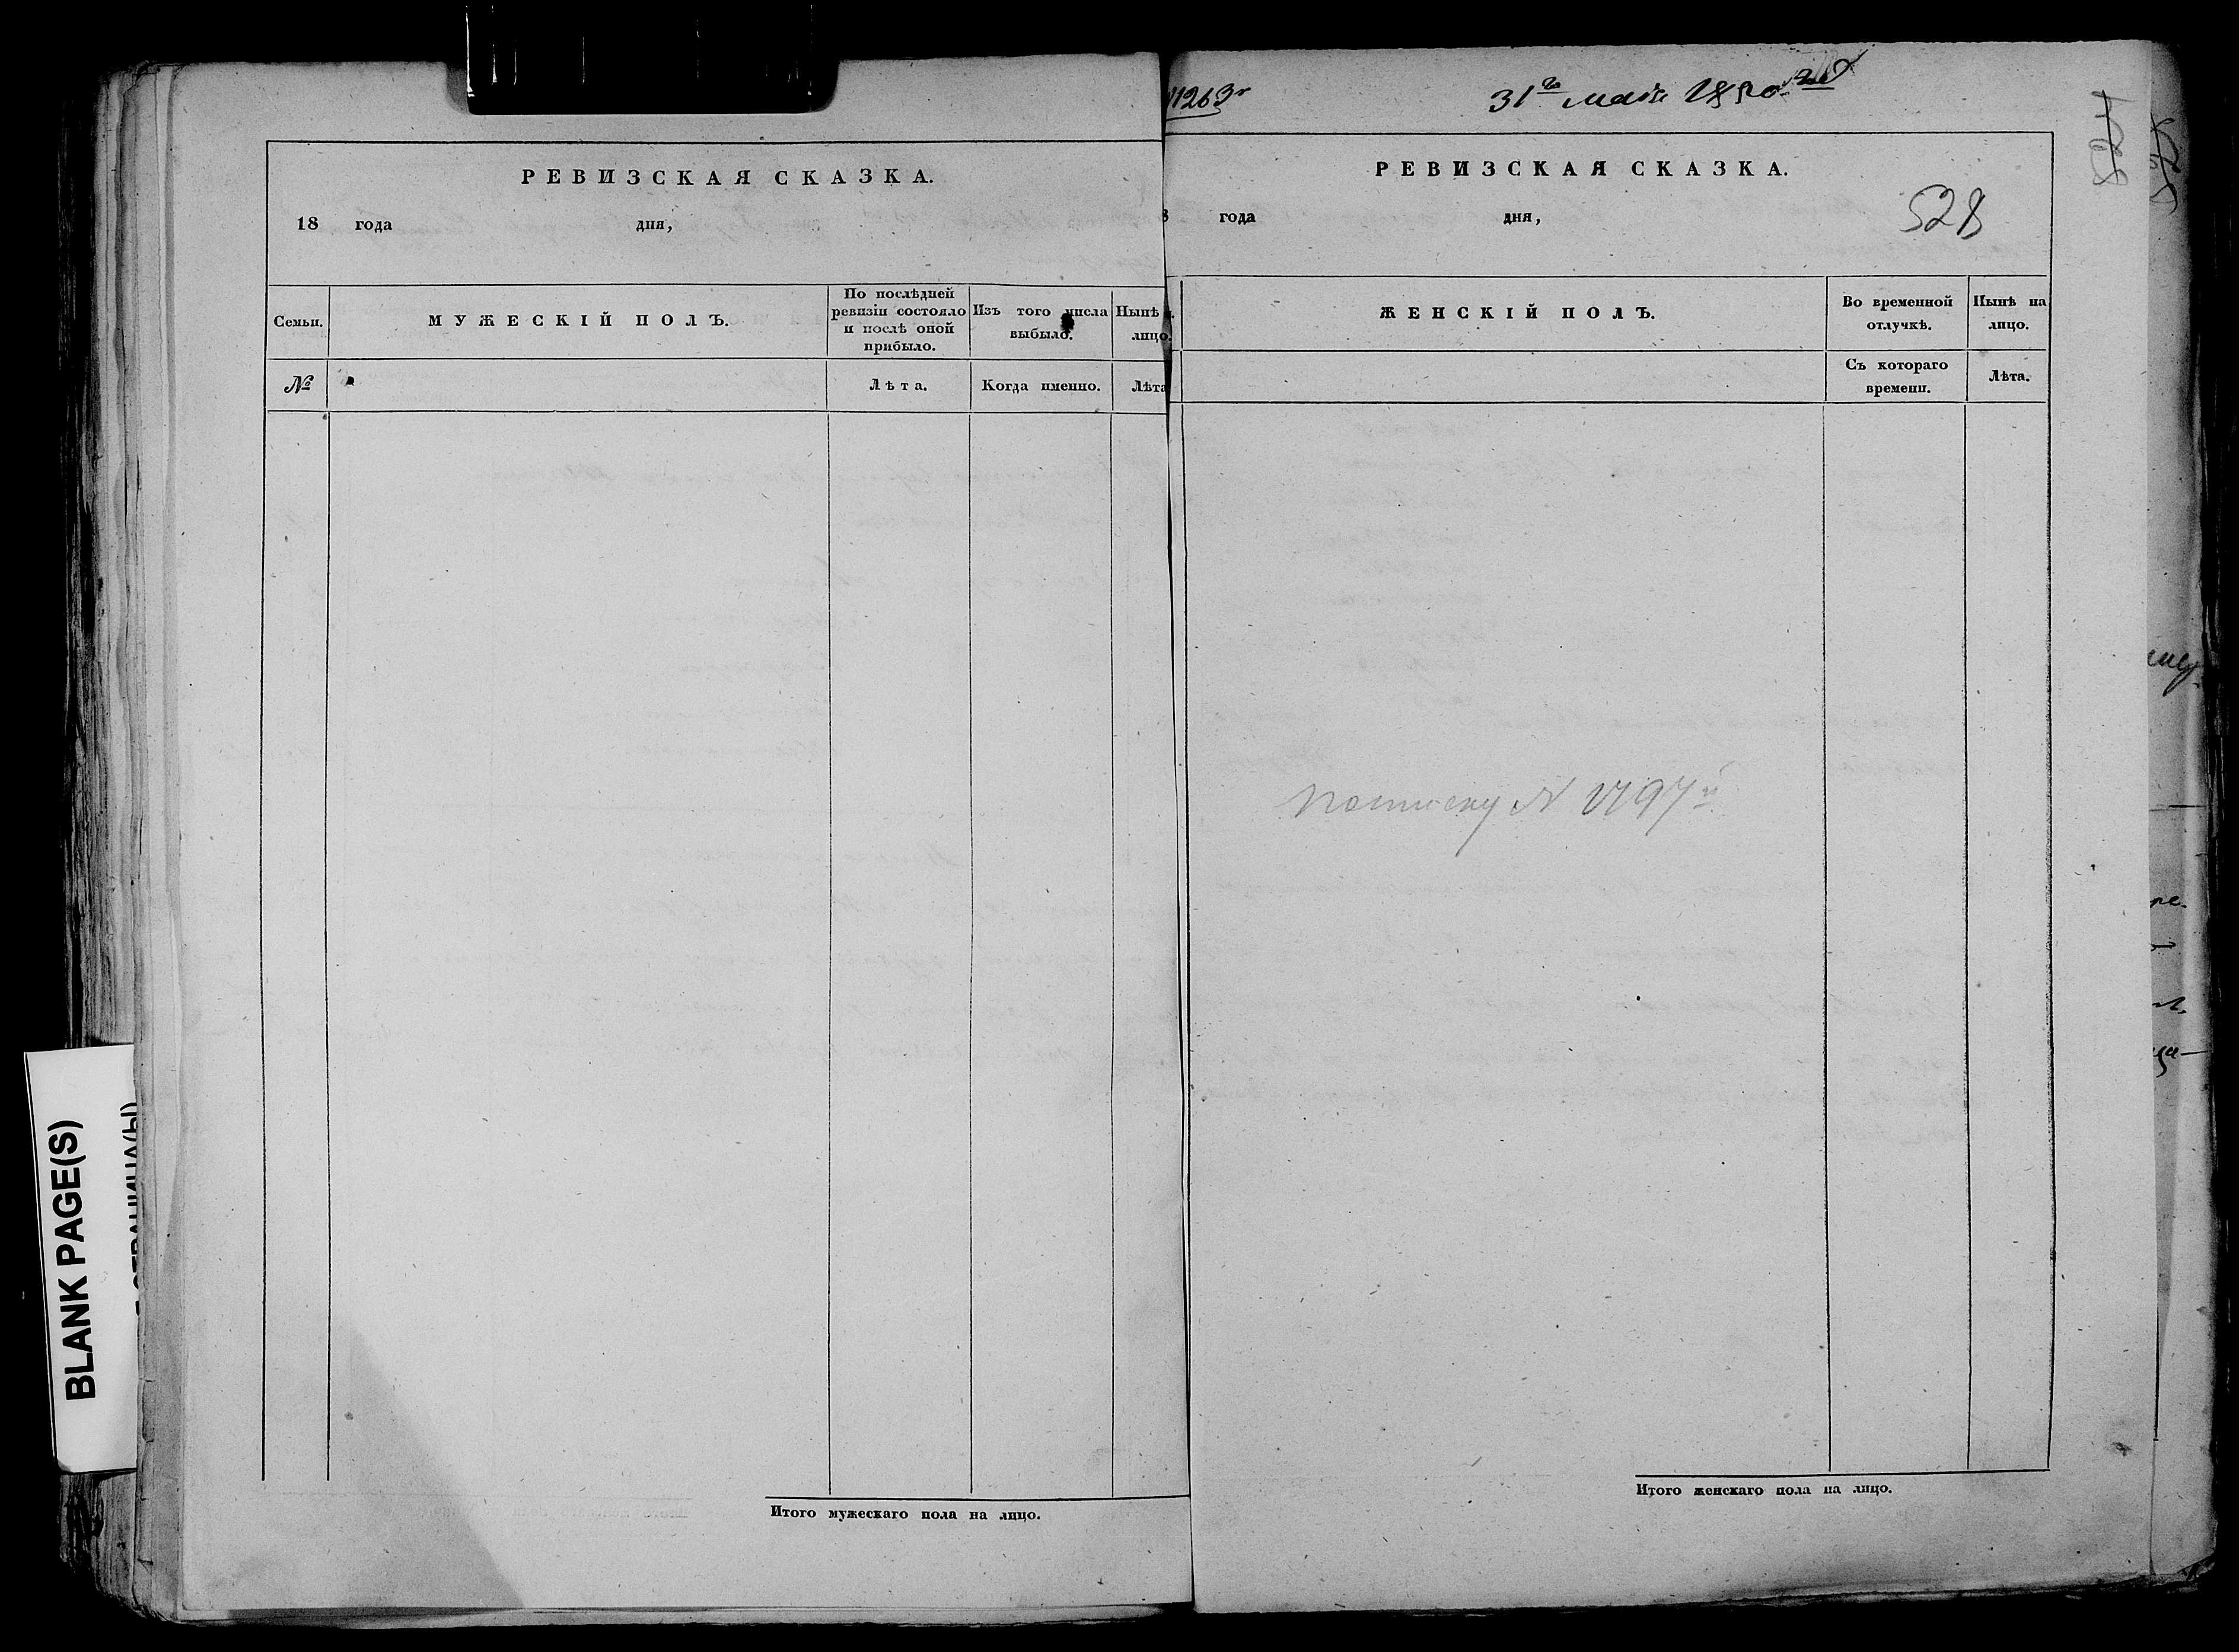 РЕВИЗСКАЯ СКАЗКА.
18 года дня,
Семьи.
МУЖЕСКІЙ ПОЛЪ.
По послѣдней
ревизіи состояло
и послѣ оной
прибыло.
Изъ того числа
выбыло.
Нынѣ
лицо
№
Лѣта.
Когда именно.
Лѣта
Итого мужескаго пола на лицо.
1263
31го мая 1850 года
РЕВИЗСКАЯ СКАЗКА.
года дня,
528
ЖЕНСКІЙ ПОЛЪ.
Во временной
отлучкѣ.
Нынѣ на
лицо.
Съ котораго
времени.
Лѣта.
по списку №
Итого женскаго пола на лицо.
BLANK PAGE(S)